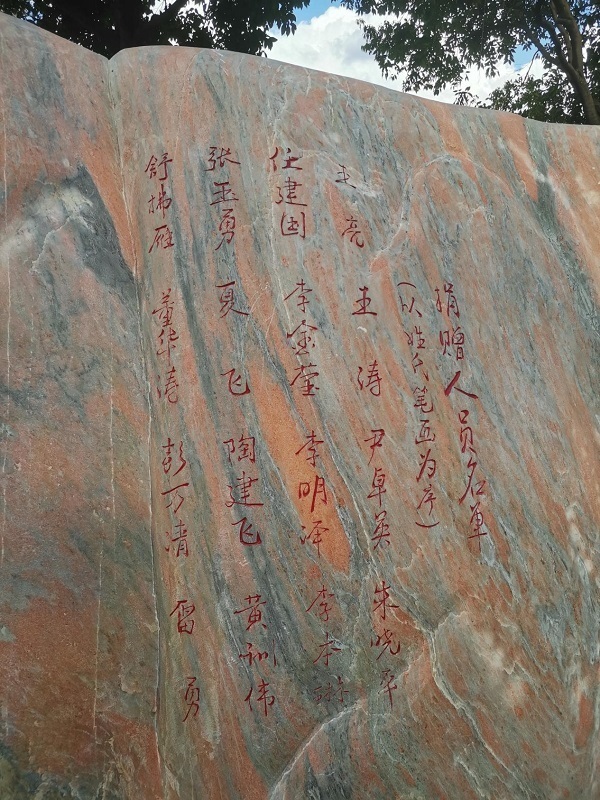 捐赠人员名单
(以姓氏笔画为序)
王亮 王涛 尹卓英 朱晓平
任建国 李明泽
张玉勇 夏飞 陶建飞 黄训伟
舒拂雁 董华涛 彭万清 雷勇